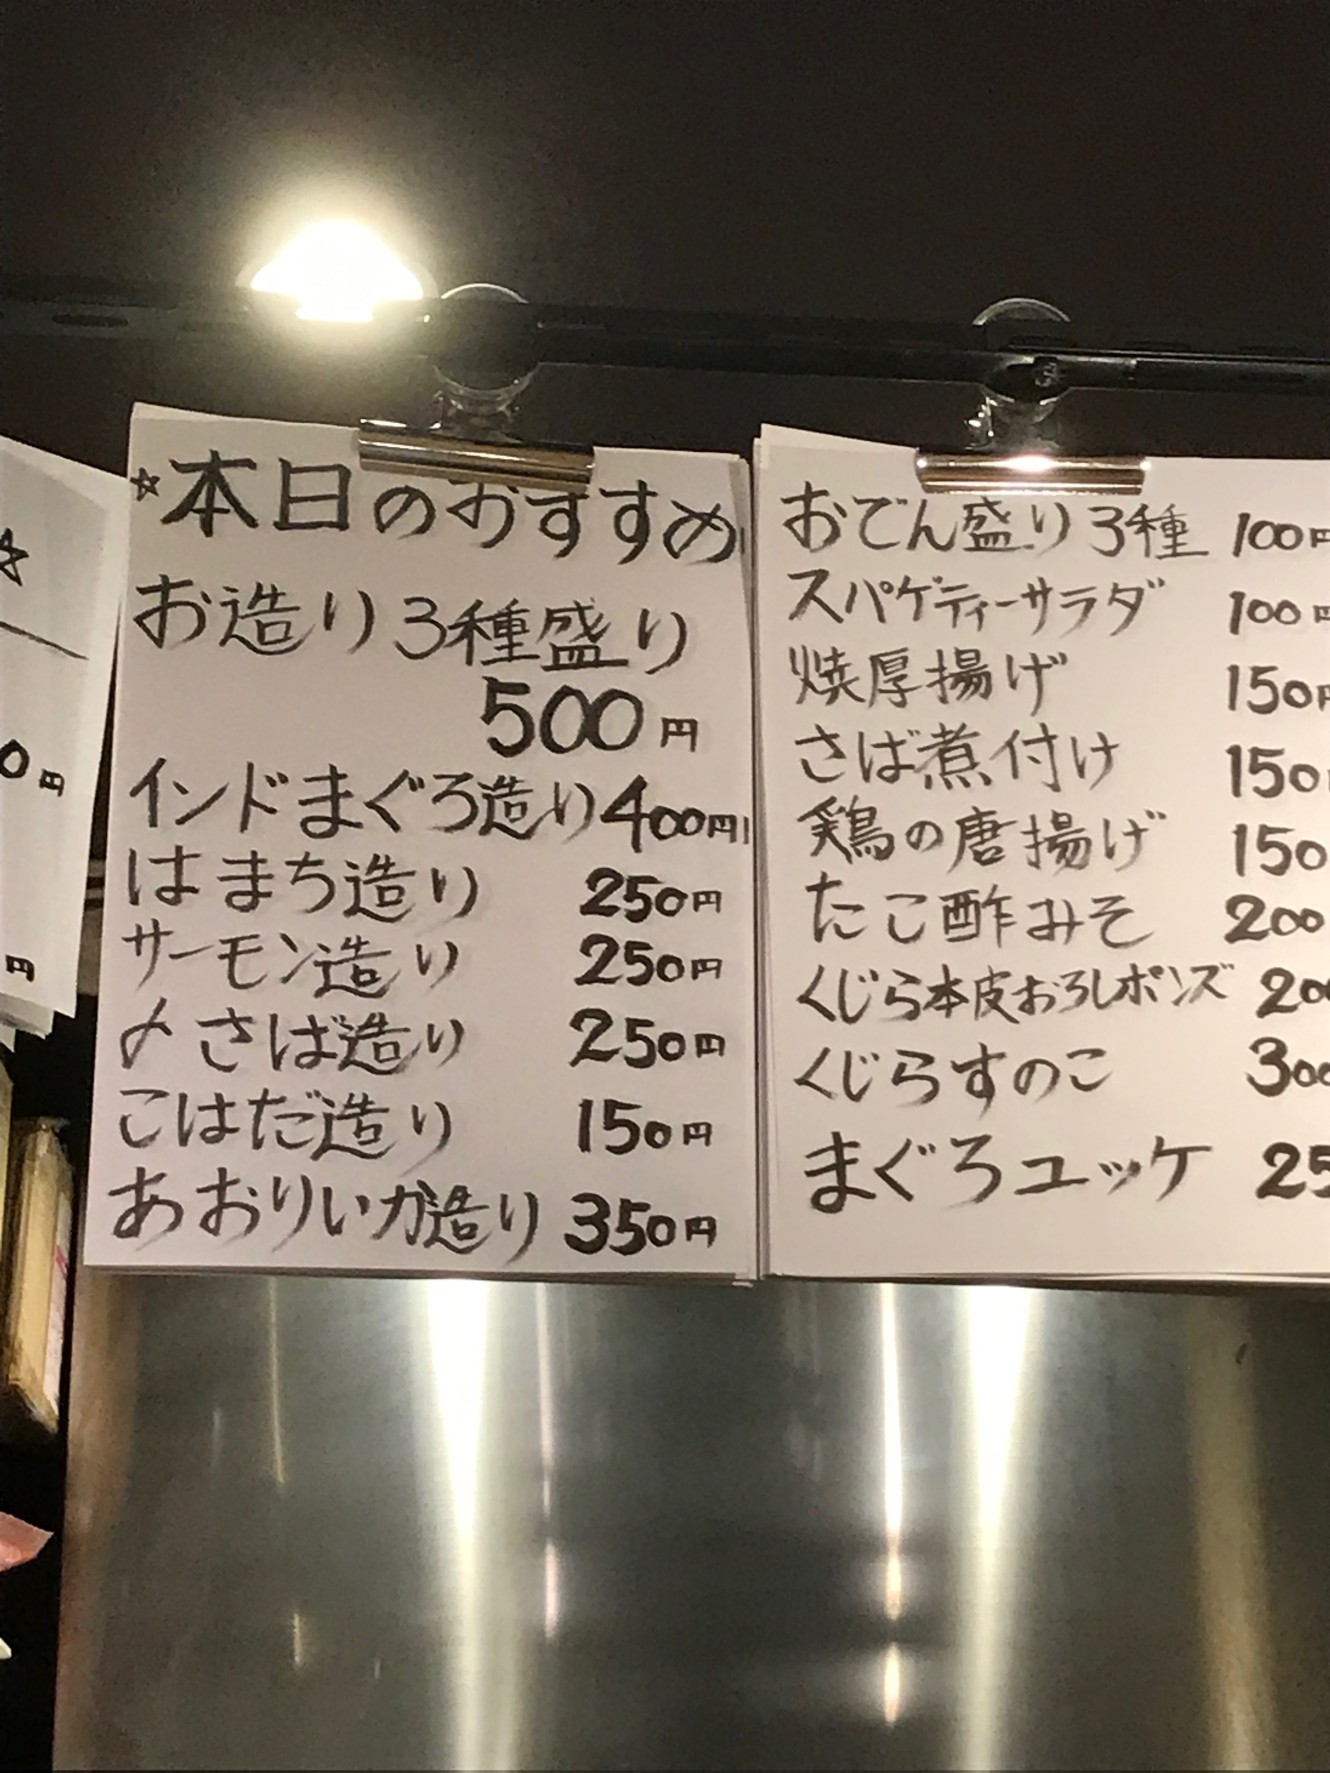 ☆
0円
円
☆本日のおすすめ
お造り3種盛り
500円
インドまぐろ造り400円
はまち造り 250円
サーモン造り 250円
〆さば造り 250円
こはだ造り 150円
あおりいか造り 350円
おでん盛り3種 100円
スパゲティーサラダ 100円
焼厚揚げ 150円
さば煮付け 150
鶏の唐揚げ 150
たこ酢みそ 200
くじら本皮おろしポンズ 200
くじらすのこ 300
まぐろユッケ 25